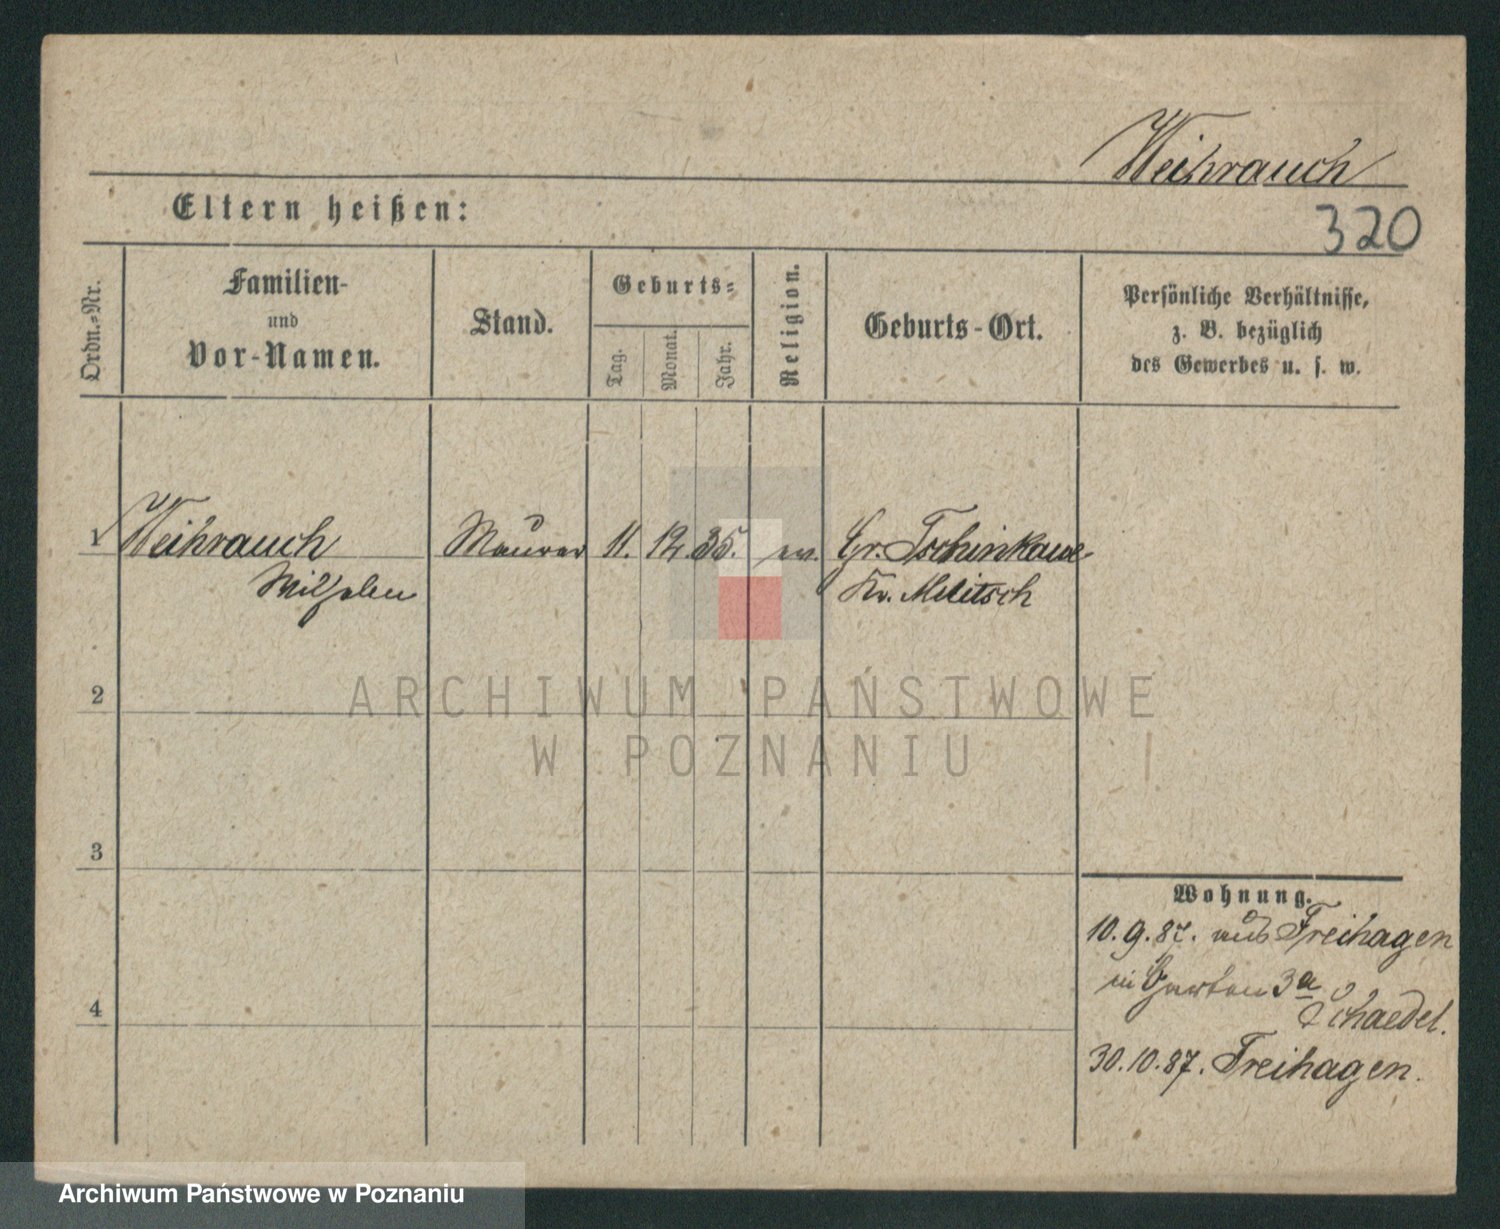 Weihrauch
Eltern heißen:
320
Ordn.-Nr.
Familien-
und
Vor-Namen.
Stand.
Geburts-
Tag.
Monat.
Jahr.
Religion.
Geburts-Ort.
Persönliche Verhältnisse,
z. B. bezüglich
des Gewerbes u. s. w.
1 Weihrauch Maurer 11. 12. 35. ev. Gr. Tschunkawe
Wilhelm Kr. Militsch
2
ARCHIWUM PAŃSTWOWE
W POZNANIU
3
Wohnung.
10.9.87. aus Freihagen
in Garten 3a
Schaedel.
4
30.10.87. Freihagen.
Archiwum Państwowe w Poznaniu